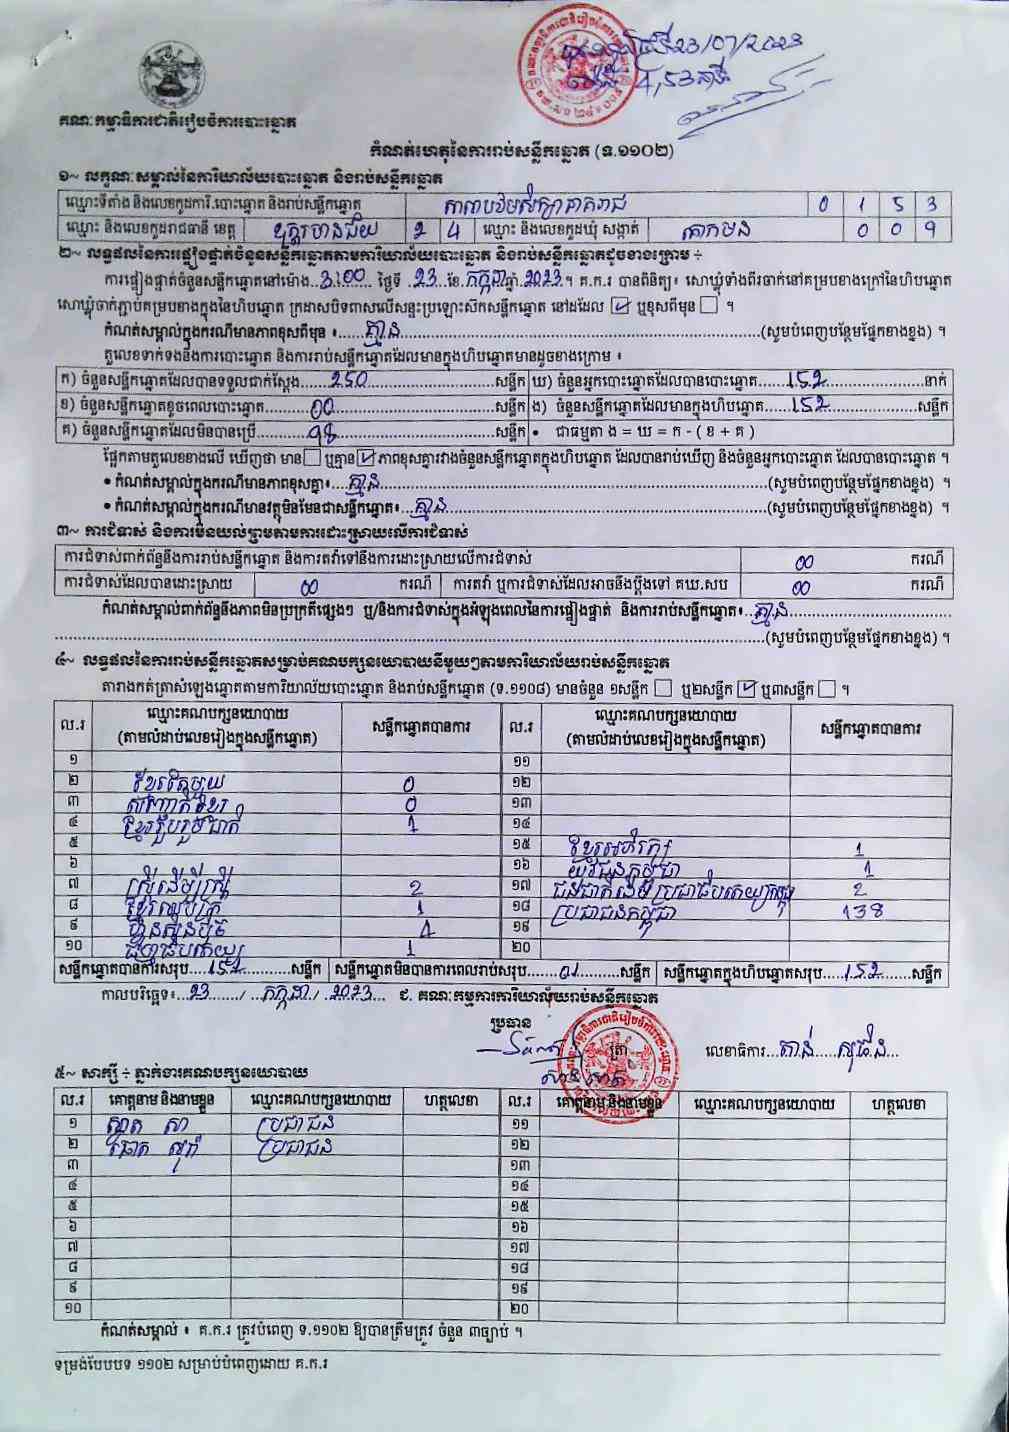 23/07/2023
4,53 នាទី
គណៈកម្មាធិការជាតិរៀបចំការបោះឆ្នោត
កំណត់ហេតុនៃការរាប់សន្លឹកឆ្នោត (ទ.១១០២)
១~ លក្ខណៈសម្គាល់នៃការិយាល័យបោះឆ្នោត និងរាប់សន្លឹកឆ្នោត
ឈ្មោះទីតាំង និងលេខកូដការិ.បោះឆ្នោត និងរាប់សន្លឹកឆ្នោត 0 1 5 3
ឈ្មោះ និងលេខកូដរាជធានី ខេត្ត ឧត្តរមានជ័យ 2 4 ឈ្មោះ និងលេខកូដឃុំ សង្កាត់ គោកមន 0 0 9
២~ លទ្ធផលនៃការផ្ទៀងផ្ទាត់ចំនួនសន្លឹកឆ្នោតតាមការិយាល័យបោះឆ្នោត និងរាប់សន្លឹកឆ្នោតដូចខាងក្រោម ÷
ការផ្ទៀងផ្ទាត់ចំនួនសន្លឹកឆ្នោតនៅម៉ោង..3:00..ថ្ងៃទី..23..ខែ.កក្កដា.ឆ្នាំ.2023.។ គ.ក.រ បានពិនិត្យ៖ សោឃ្លុំទាំងពីរចាក់នៅគម្របខាងក្រៅនៃហិបឆ្នោត
សោឃ្លុំចាក់ភ្ជាប់គម្របខាងក្នុងនៃហិបឆ្នោត ក្រដាសបិទពាសលើសន្ទះប្រឡោះសឹកសន្លឹកឆ្នោត នៅដដែល ☑ ឬខុសពីមុន ☐ ។
កំណត់សម្គាល់ក្នុងករណីមានភាពខុសពីមុន ៖....គ្មាន....(សូមបំពេញបន្ថែមផ្នែកខាងខ្នង) ។
តួលេខទាក់ទងនឹងការបោះឆ្នោត និងការរាប់សន្លឹកឆ្នោតដែលមានក្នុងហិបឆ្នោតមានដូចខាងក្រោម ៖
ក) ចំនួនសន្លឹកឆ្នោតដែលបានទទួលជាក់ស្តែង......250......សន្លឹក ឃ) ចំនួនអ្នកបោះឆ្នោតដែលបានបោះឆ្នោត......152......នាក់
ខ) ចំនួនសន្លឹកឆ្នោតខូចពេលបោះឆ្នោត......00......សន្លឹក ង) ចំនួនសន្លឹកឆ្នោតដែលមានក្នុងហិបឆ្នោត......152......សន្លឹក
គ) ចំនួនសន្លឹកឆ្នោតដែលមិនបានប្រើ......98......សន្លឹក • ជាធម្មតា ង = ឃ = ក - ( ខ + គ )
ផ្អែកតាមតួលេខខាងលើ ឃើញថា មាន ☐ ឬគ្មាន ☑ ភាពខុសគ្នារវាងចំនួនសន្លឹកឆ្នោតក្នុងហិបឆ្នោត ដែលបានរាប់ឃើញ និងចំនួនអ្នកបោះឆ្នោត ដែលបានបោះឆ្នោត ។
• កំណត់សម្គាល់ក្នុងករណីមានភាពខុសគ្នា៖...គ្មាន....(សូមបំពេញបន្ថែមផ្នែកខាងខ្នង) ។
• កំណត់សម្គាល់ក្នុងករណីមានវត្ថុមិនមែនជាសន្លឹកឆ្នោត៖...គ្មាន....(សូមបំពេញបន្ថែមផ្នែកខាងខ្នង) ។
៣~ ការជំទាស់ និងការមិនយល់ព្រមតាមការដោះស្រាយលើការជំទាស់
ការជំទាស់ពាក់ព័ន្ធនឹងការរាប់សន្លឹកឆ្នោត និងការតវ៉ាទៅនឹងការដោះស្រាយលើការជំទាស់ 00 ករណី
ការជំទាស់ដែលបានដោះស្រាយ 00 ករណី ការតវ៉ា ឬការជំទាស់ដែលអាចនឹងប្តឹងទៅ គឃ.សប 00 ករណី
កំណត់សម្គាល់ពាក់ព័ន្ធនឹងភាពមិនប្រក្រតីផ្សេងៗ ឬ/និងការជំទាស់ក្នុងអំឡុងពេលនៃការផ្ទៀងផ្ទាត់ និងការរាប់សន្លឹកឆ្នោត៖..គ្មាន....
....(សូមបំពេញបន្ថែមផ្នែកខាងខ្នង) ។
៤~ លទ្ធផលនៃការរាប់សន្លឹកឆ្នោតសម្រាប់គណបក្សនយោបាយនីមួយៗតាមការិយាល័យរាប់សន្លឹកឆ្នោត
តារាងកត់ត្រាសំឡេងឆ្នោតតាមការិយាល័យបោះឆ្នោត និងរាប់សន្លឹកឆ្នោត (ទ.១១០៨) មានចំនួន ១សន្លឹក ☐ ឬ២សន្លឹក ☑ ឬ៣សន្លឹក ☐ ។
ល.រ ឈ្មោះគណបក្សនយោបាយ (តាមលំដាប់លេខរៀងក្នុងសន្លឹកឆ្នោត) សន្លឹកឆ្នោតបានការ ល.រ ឈ្មោះគណបក្សនយោបាយ (តាមលំដាប់លេខរៀងក្នុងសន្លឹកឆ្នោត) សន្លឹកឆ្នោតបានការ
១ ១១
២ ខ្មែរតែមួយ 0 ១២
៣ សញ្ជាតិខ្មែរ 0 ១៣
៤ ខ្មែររួបរួមជាតិ 1 ១៤
៥ ១៥ ខ្មែរអភិរក្ស 1
៦ ១៦ យុវជនកម្ពុជា 1
៧ ស្ត្រីដើម្បីស្ត្រី 2 ១៧ ជនជាតិដើមប្រជាធិបតេយ្យកម្ពុជា 2
៨ ខ្មែរឈប់ក្រ 1 ១៨ ប្រជាជនកម្ពុជា 138
៩ ហ៊្វុនស៊ិនប៉ិច 4 ១៩
១០ ធម្មាធិបតេយ្យ 1 ២០
សន្លឹកឆ្នោតបានការសរុប....151....សន្លឹក សន្លឹកឆ្នោតមិនបានការពេលរាប់សរុប....01....សន្លឹក សន្លឹកឆ្នោតក្នុងហិបឆ្នោតសរុប....152....សន្លឹក
កាលបរិច្ឆេទ៖...23.../..កក្កដា../..2023... ជ. គណៈកម្មការការិយាល័យរាប់សន្លឹកឆ្នោត
ប្រធាន
ត្រា លេខាធិការ...តាន់.....សុផន...
៥~ សាក្សី ÷ ភ្នាក់ងារគណបក្សនយោបាយ
ល.រ គោត្តនាម និងនាមខ្លួន ឈ្មោះគណបក្សនយោបាយ ហត្ថលេខា ល.រ គោត្តនាម និងនាមខ្លួន ឈ្មោះគណបក្សនយោបាយ ហត្ថលេខា
១ ស្វាត សា ប្រជាជន ១១
២ ប្រជាជន ១២
៣ ១៣
៤ ១៤
៥ ១៥
៦ ១៦
៧ ១៧
៨ ១៨
៩ ១៩
១០ ២០
កំណត់សម្គាល់ ៖ គ.ក.រ ត្រូវបំពេញ ទ.១១០២ ឱ្យបានត្រឹមត្រូវ ចំនួន ៣ច្បាប់ ។
ទម្រង់បែបបទ ១១០២ សម្រាប់បំពេញដោយ គ.ក.រ